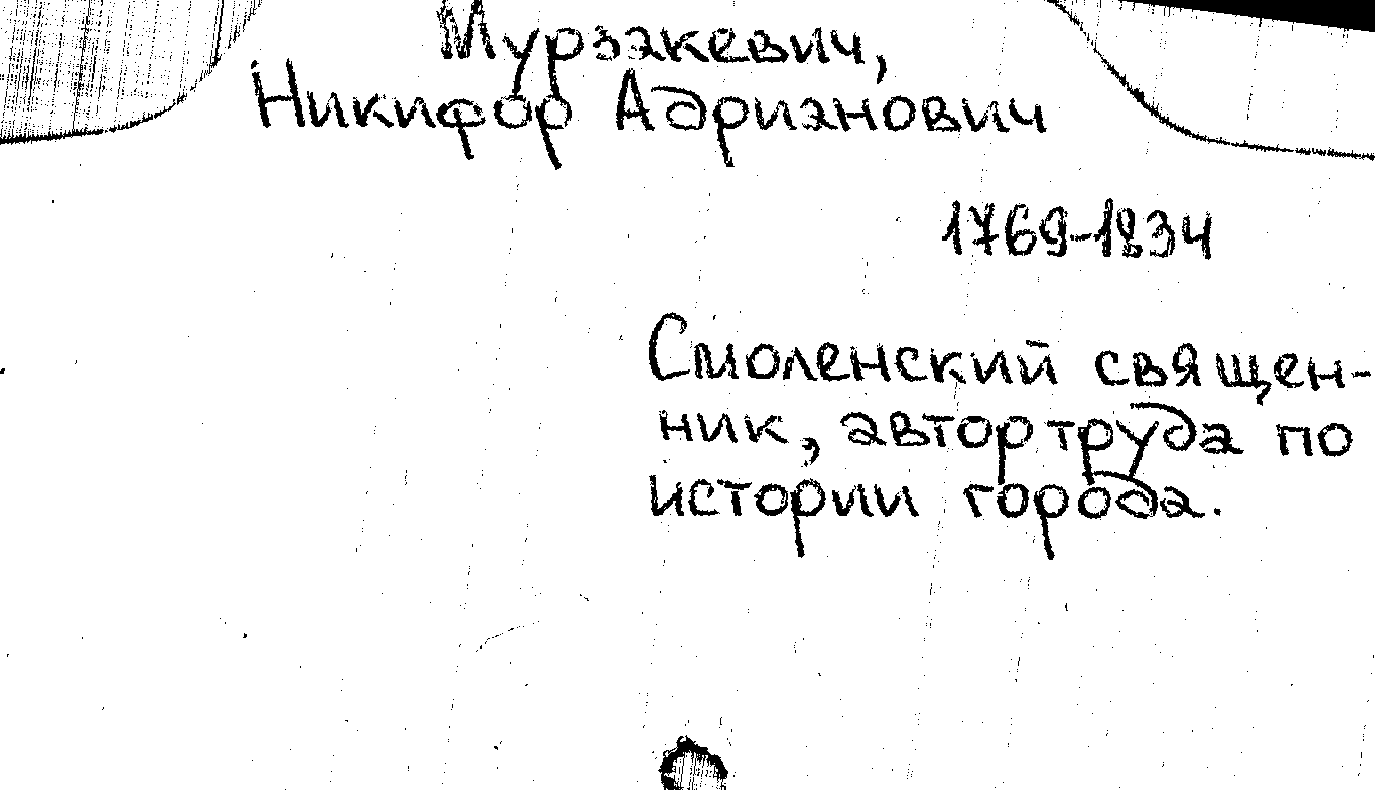 Мурзакевич,
Никифор Адрианович
1769-1834
Смоленский священ-
ник, автор труда по
истории города.